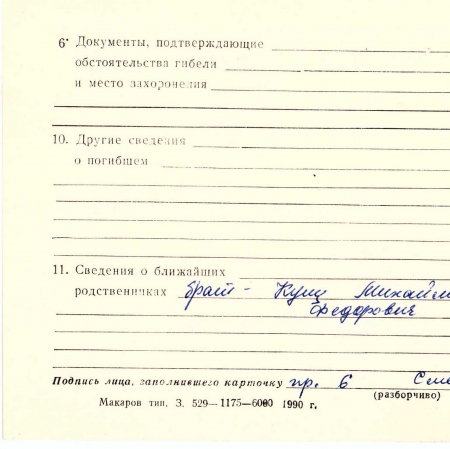 6. Документы, подтверждающие
обстоятельства гибели
и место захоронения
10. Другие сведения
о погибшем
11. Сведения о ближайших
родственниках брат - Куц Михаил
Федорович
Подпись лица, заполнившего карточку пр. 6
(разборчиво)
Макаров тип. З. 529—1175—6000 1990 г.